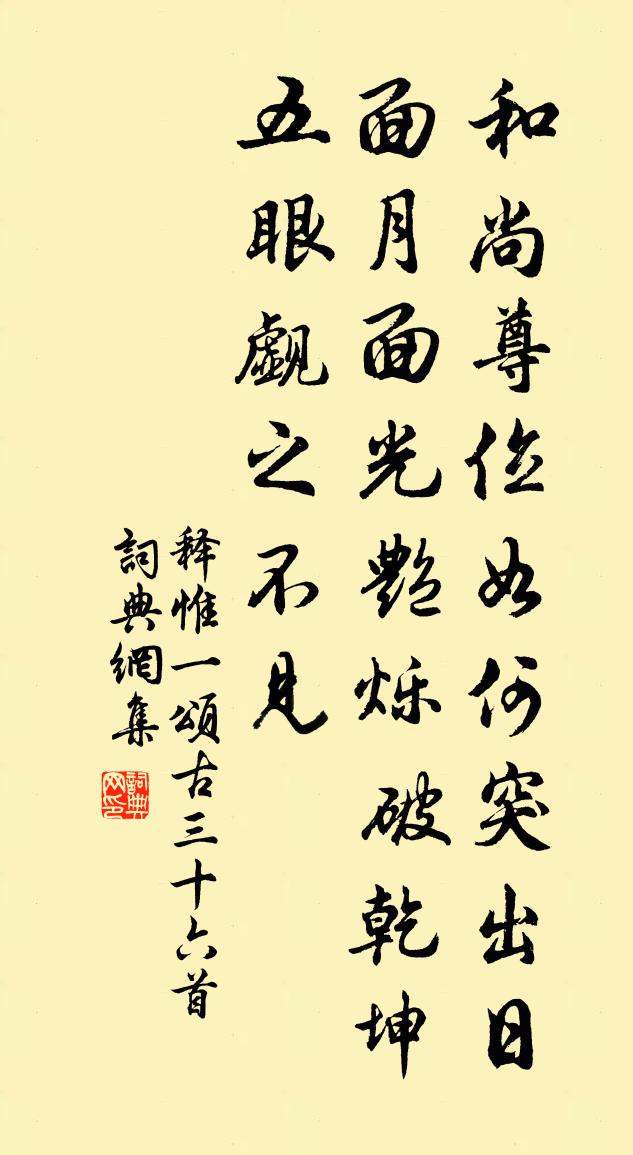 和尚尊位如何突出日
面月面光艷烁破乾坤
五眼觑之不見
释惟一頌古三十六首
詞典網集
詞典网印